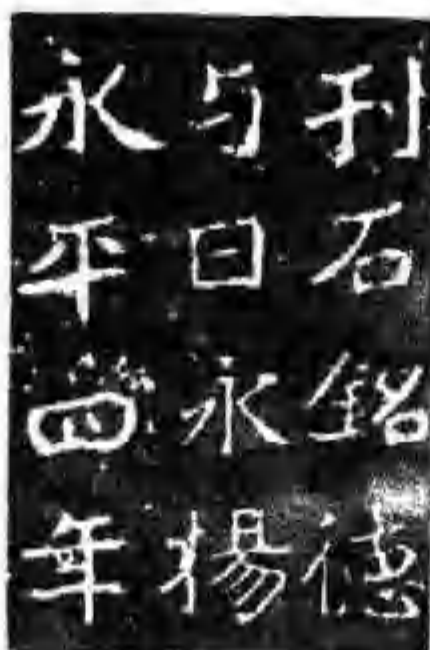 刊石銘德
与日永揚
永平四年